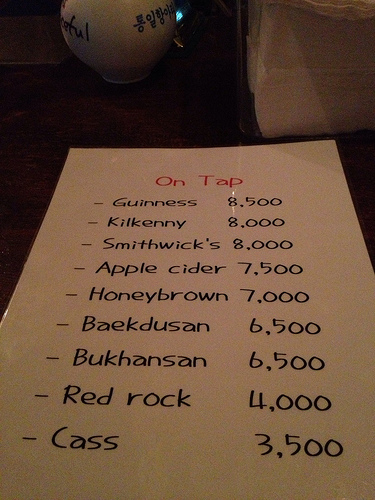 통일항아리
On Tap
- Guinness 8,500
- Kilkenny 8,000
- Smithwick's 8,000
- Apple cider 7,500
- Honeybrown 7,000
- Baekdusan 6,500
- Bukhansan 6,500
- Red rock 4,000
- Cass 3,500